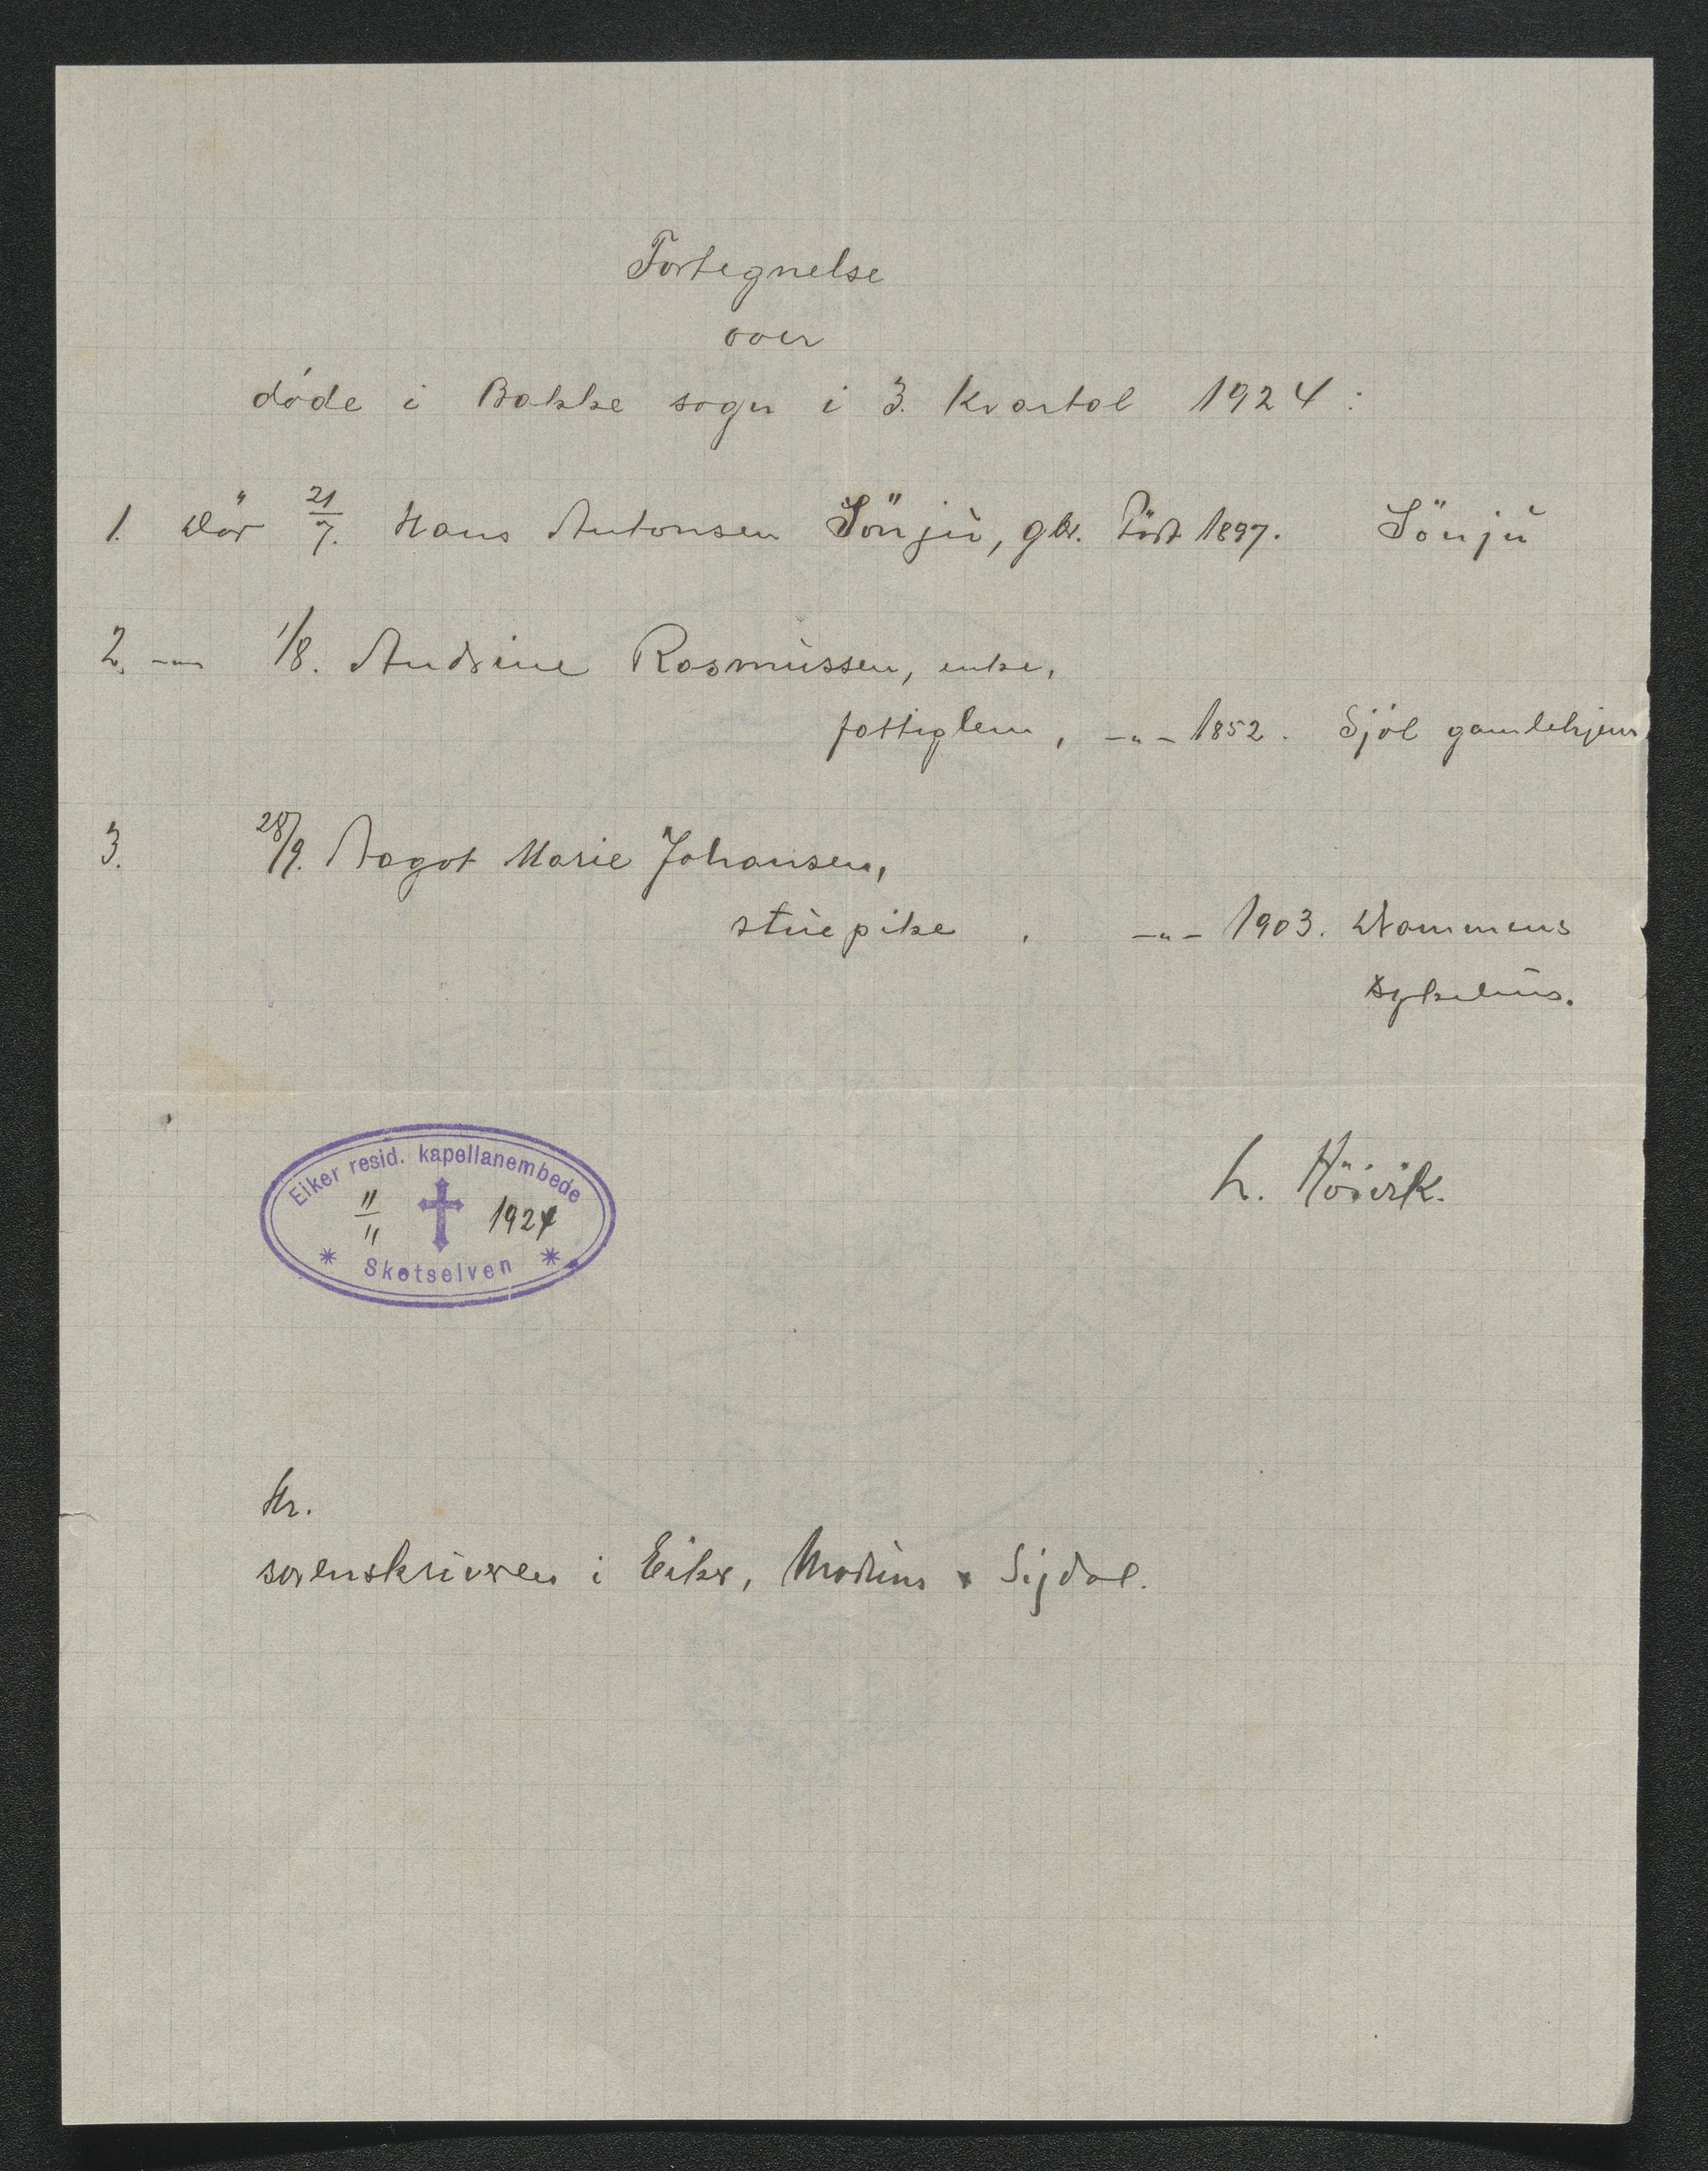 Fortegnelse
over
døde i Bakke sogn i 3. kvartal 1924:
1. Død 21/7. Hans Antonsen Sönju, gbr. Född 1897. Sönju
2. -"- 1/8. Andrine Rasmussen, enke,
fattiglem, -"- 1852. Sjöl gamlehjem
3. 28/9. Aagot Marie Johansen,
stuepike, -"- 1903. Drammens
sykehus.
Eiker resid. kapellanembede
11/11 1924
Skotselven
L. Hösvik.
Hr.
sorenskriveren i Eiker, Modum & Sigdal.